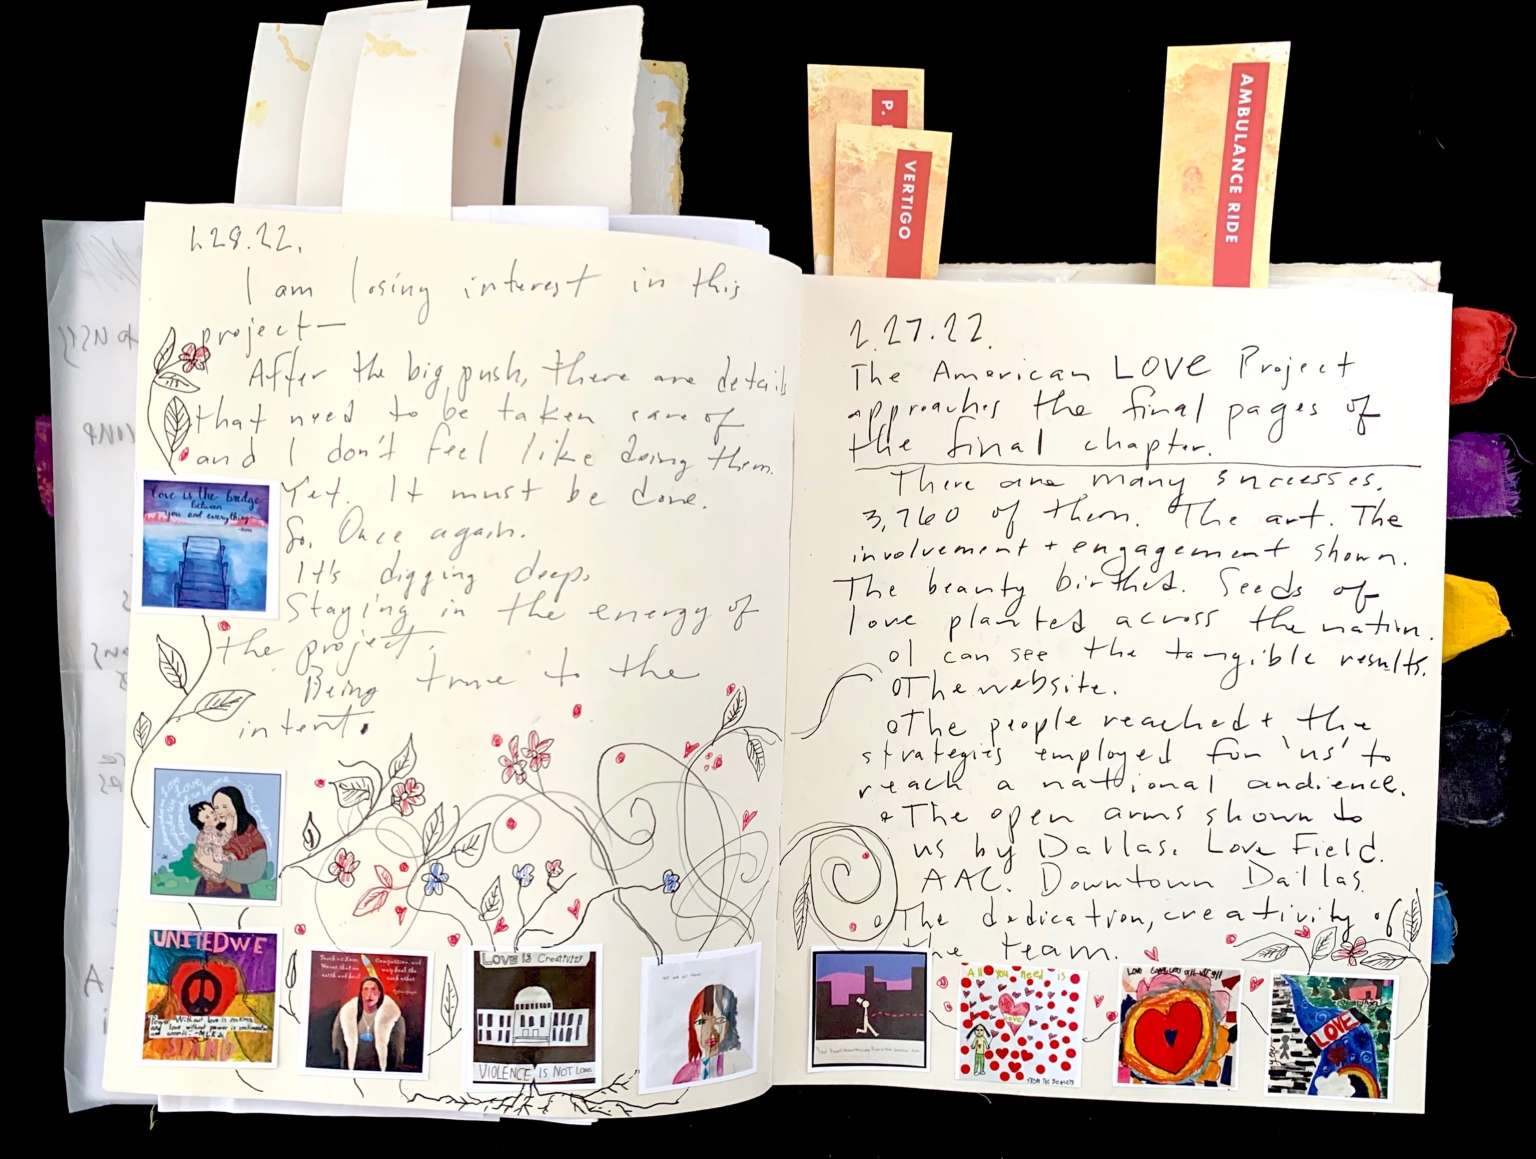 P.
VERTIGO
AMBULANCE RIDE
1.28.22.
I am losing interest in this
project—
After the big push, there are details
that need to be taken care of
and I don't feel like doing them.
Yet. It must be done.
So, Once again.
It's digging deep.
Staying in the energy of
the project.
Being true to the
intent.
Love is the bridge
between
you and everything
UNITED WE
STAND
LOVE IS Creativity
VIOLENCE IS NOT LOVE
2.27.22.
The American LOVE Project
approaches the final pages of
the final chapter.
There are many successes.
3,760 of them. The art. The
involvement + engagement shown.
The beauty birthed. Seeds of
love planted across the nation.
o I can see the tangible results.
o The website.
o The people reached + the
strategies employed for 'us' to
reach a national audience.
o The open arms shown to
us by Dallas. Love Field.
AAC. Downtown Dallas.
o The dedication, creativity of
the team.
All you need is
love
FROM THE BEATLES
LOVE